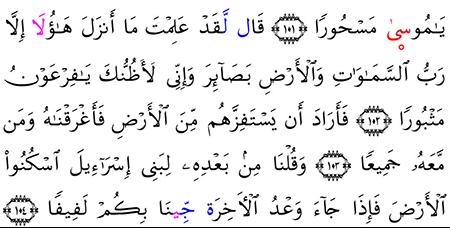 يَٰمُوسِىٰ مَسْحُورًا ﴿١٠١﴾ قَال لَّقَدْ عَلِمْتَ مَا أَنزَلَ هَٰٓؤُلَا إِلَّا
رَبُّ السَّمَٰوَٰتِ وَالْأَرْضِ بَصَآئِرَ وَإِنِّى لَأَظُنُّكَ يَٰفِرْعَوْنُ
مَثْبُورًا ﴿١٠٢﴾ فَأَرَادَ أَن يَسْتَفِزَّهُم مِّنَ ٱلْأَرْضِ فَأَغْرَقْنَٰهُ وَمَن
مَّعَهُۥ جَمِيعًا ﴿١٠٣﴾ وَقُلْنَا مِنۢ بَعْدِهِۦ لِبَنِى إِسْرَٰٓءِيلَ ٱسْكُنُوا۟
ٱلْأَرْضَ فَإِذَا جَآءَ وَعْدُ ٱلْأَخِرَة جِّينَا بِكُمْ لَفِيفًا ﴿١٠٤﴾